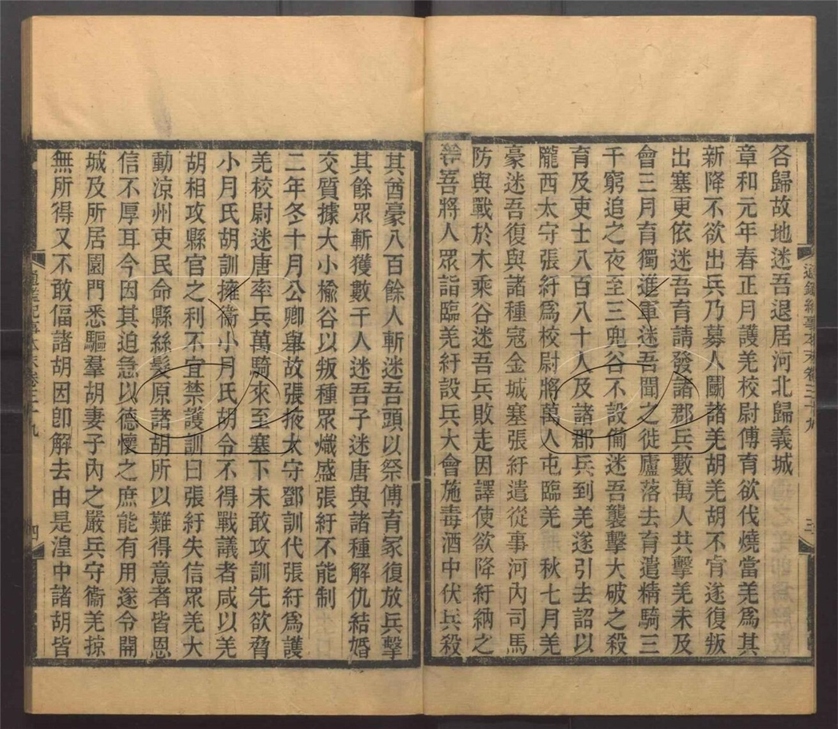 各歸故地迷吾退居河北歸義城
章和元年春正月護羌校尉傅育欲伐燒當羌爲其
新降不欲出兵乃募人鬬諸羌胡羌胡不肯遂復叛
出塞更依迷吾育請發諸郡兵數萬人共擊羌未及
會三月育獨進軍迷吾聞之徙廬落去育遣精騎三
千窮追之夜至三兜谷不設備迷吾襲擊大破之殺
育及吏士八百八十人及諸郡兵到羌遂引去詔以
隴西太守張紆爲校尉將萬人屯臨羌 秋七月羌
豪迷吾復與諸種寇金城塞張紆遣從事河內司馬
防與戰於木乘谷迷吾兵敗走因譯使欲降紆納之
迷吾將人眾詣臨羌紆設兵大會施毒酒中伏兵殺
其酋豪八百餘人斬迷吾頭以祭傅育冢復放兵擊
其餘眾斬獲數千人迷吾子迷唐與諸種解仇結婚
交質據大小榆谷以叛種眾熾盛張紆不能制
二年冬十月公卿舉故張掖太守鄧訓代張紆爲護
羌校尉迷唐率兵萬騎來至塞下未敢攻訓先欲脅
小月氏胡訓擁衞小月氏胡令不得戰議者咸以羌
胡相攻縣官之利不宜禁護訓曰張紆失信眾羌大
動涼州吏民命縣絲髮原諸胡所以難得意者皆恩
信不厚耳今因其迫急以德懷之庶能有用遂令開
城及所居園門悉驅羣胡妻子內之嚴兵守衞羌掠
無所得又不敢偪諸胡因卽解去由是湟中諸胡皆